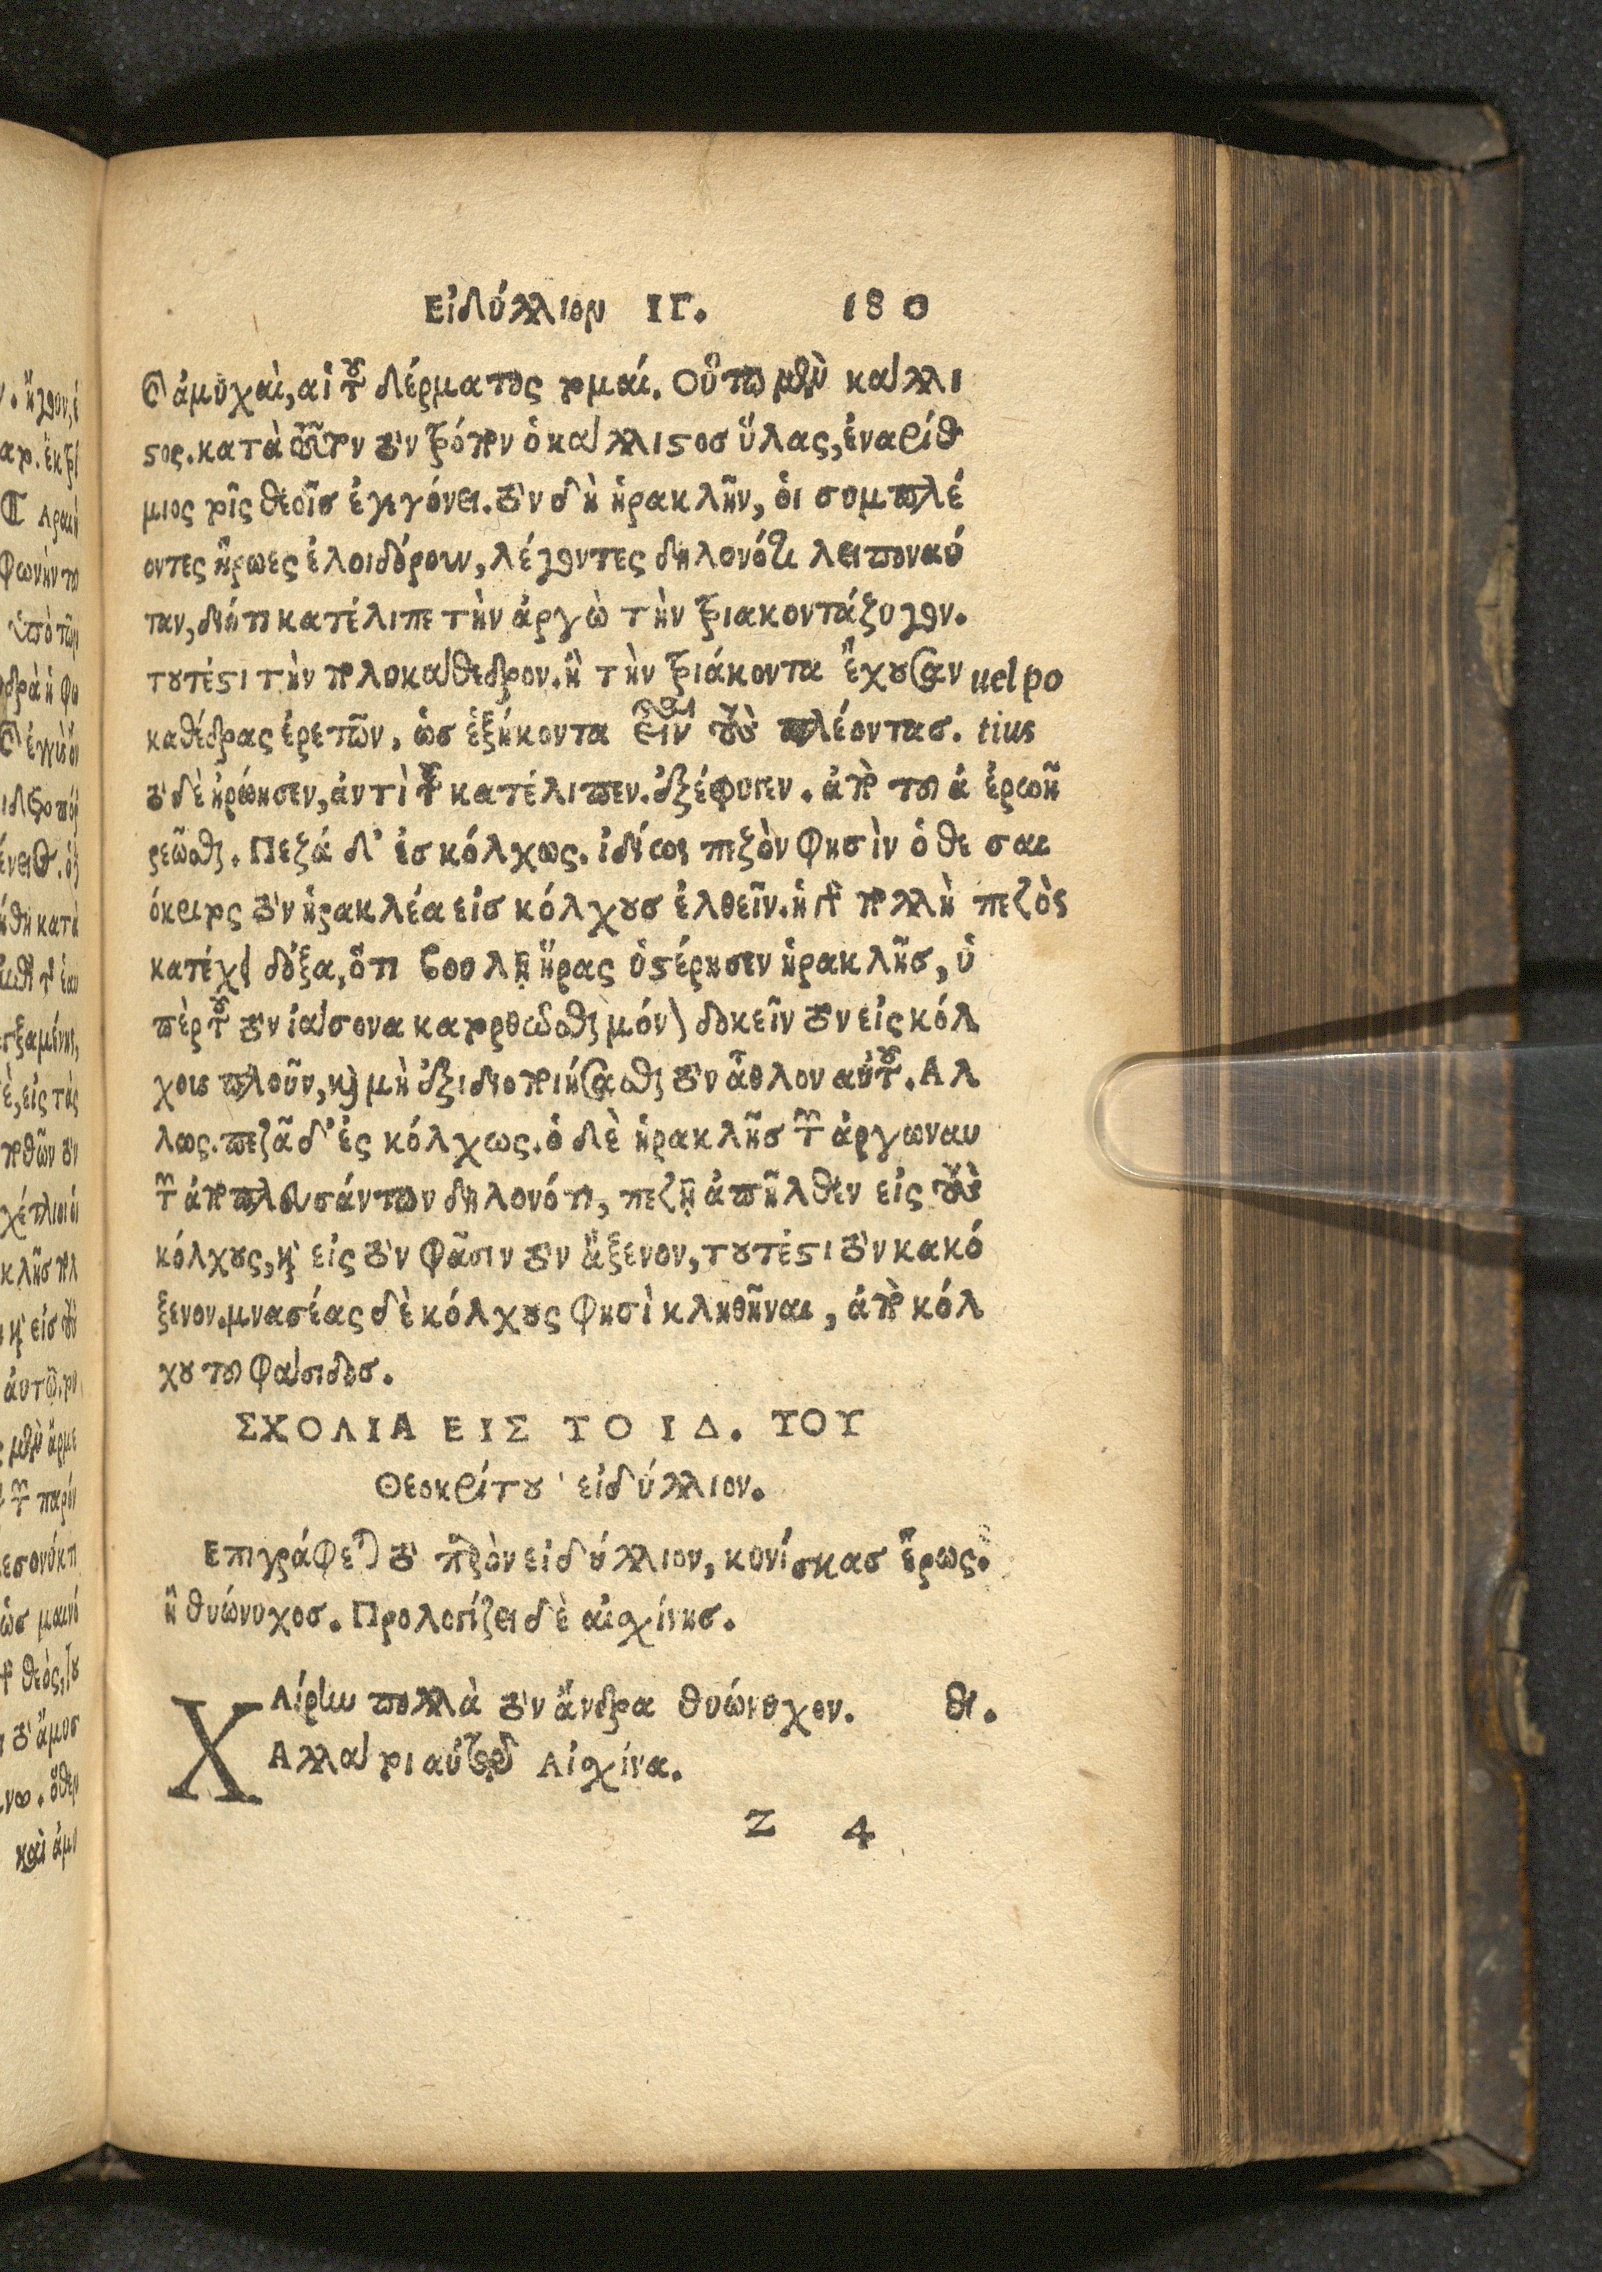 Εἰδύλλιον ΙΓ. 180
σ ἀμυχαὶ, αἱ τοῦ δέρματος τομαί. Οὕτω μὲν κάλλι
στος. κατὰ τοῦτον τὸν τρόπον ὁ κάλλιστοσ ὕλας, ἐναρίθ
μιος τοῖς θεοῖσ ἐγεγόνει. τὸν δὴ ἡρακλῆν, ὁι συμπλέ
οντες ἥρωες ἐλοιδόρουν, λέγοντες δηλονότι λειποναύ
ταν, διότι κατέλιπε τὴν ἀργὼ τὴν τριακοντάζυγον.
τουτέστι τὴν πολυκάθεδρον. ἢ τὴν τριάκοντα ἔχουσαν uel po
καθέδρας ἐρετῶν, ὡσ ἑξήκοντα εἶναι τοὺς πλέοντασ. tius
τὸ δὲ ἠρώησεν, ἀντὶ τοῦ κατέλιπεν. ἐξέφυγεν. ἀπὸ τοῦ ἀ ἐρωῆ
ρεῶσθαι. Πεζά δ' ἐσ κόλχως. ἰδίως πεζὸν φησὶν ὁ θε
όκριτος τὸν ἡρακλέα εἰσ κόλχουσ ἐλθεῖν. ἡ γὰρ πολλὴ πεζὸς
κατέχει δόξα, ὅτι βουλῇ ἥρας ὑστέρησεν ἡρακλῆσ, ὑ
πὲρ τοῦ τὸν ἰάσονα κατορθωδοσθαι μόνον δοκεῖν τὸν εἰς κόλ
χους πλοῦν, καὶ μὴ ἐξιδιοποιήσασθαι τὸν ἆθλον αὐτοῦ. Αλ
λως. πεζᾶ δ' ἐς κόλχως. ὁ δὲ ἡρακλῆσ τῶν ἀργωναυ
τῶν ἀποπλευσάντων δηλονότι, πεζῇ ἀπῆλθεν εἰς τοὺς
κόλχους, καὶ εἰς τὸν φᾶσιν τὸν ἄξενον, τουτέστι τὸν κακό
ξενον. μνασέας δὲ κόλχους φησὶ κληθῆναι, ἀπὸ κόλ
χου τοῦ φάσιδοσ.
ΣΧΟΛΙΑ ΕΙΣ ΤΟ ΙΔ. ΤΟΥ
Θεοκρίτου εἰδύλλιον.
Επιγράφεται τὸ παρὸν εἰδύλλιον, κυνίσκασ ἔρως.
ἢ θυώνυχοσ. Προλογίζει δὲ αἰσχίνησ.
ΧΑίρειν πολλὰ τὸν ἄνδρα θυώνυχον. θι.
Αλλά τοι αὐτῷ Αἰσχίνα.
Z 4